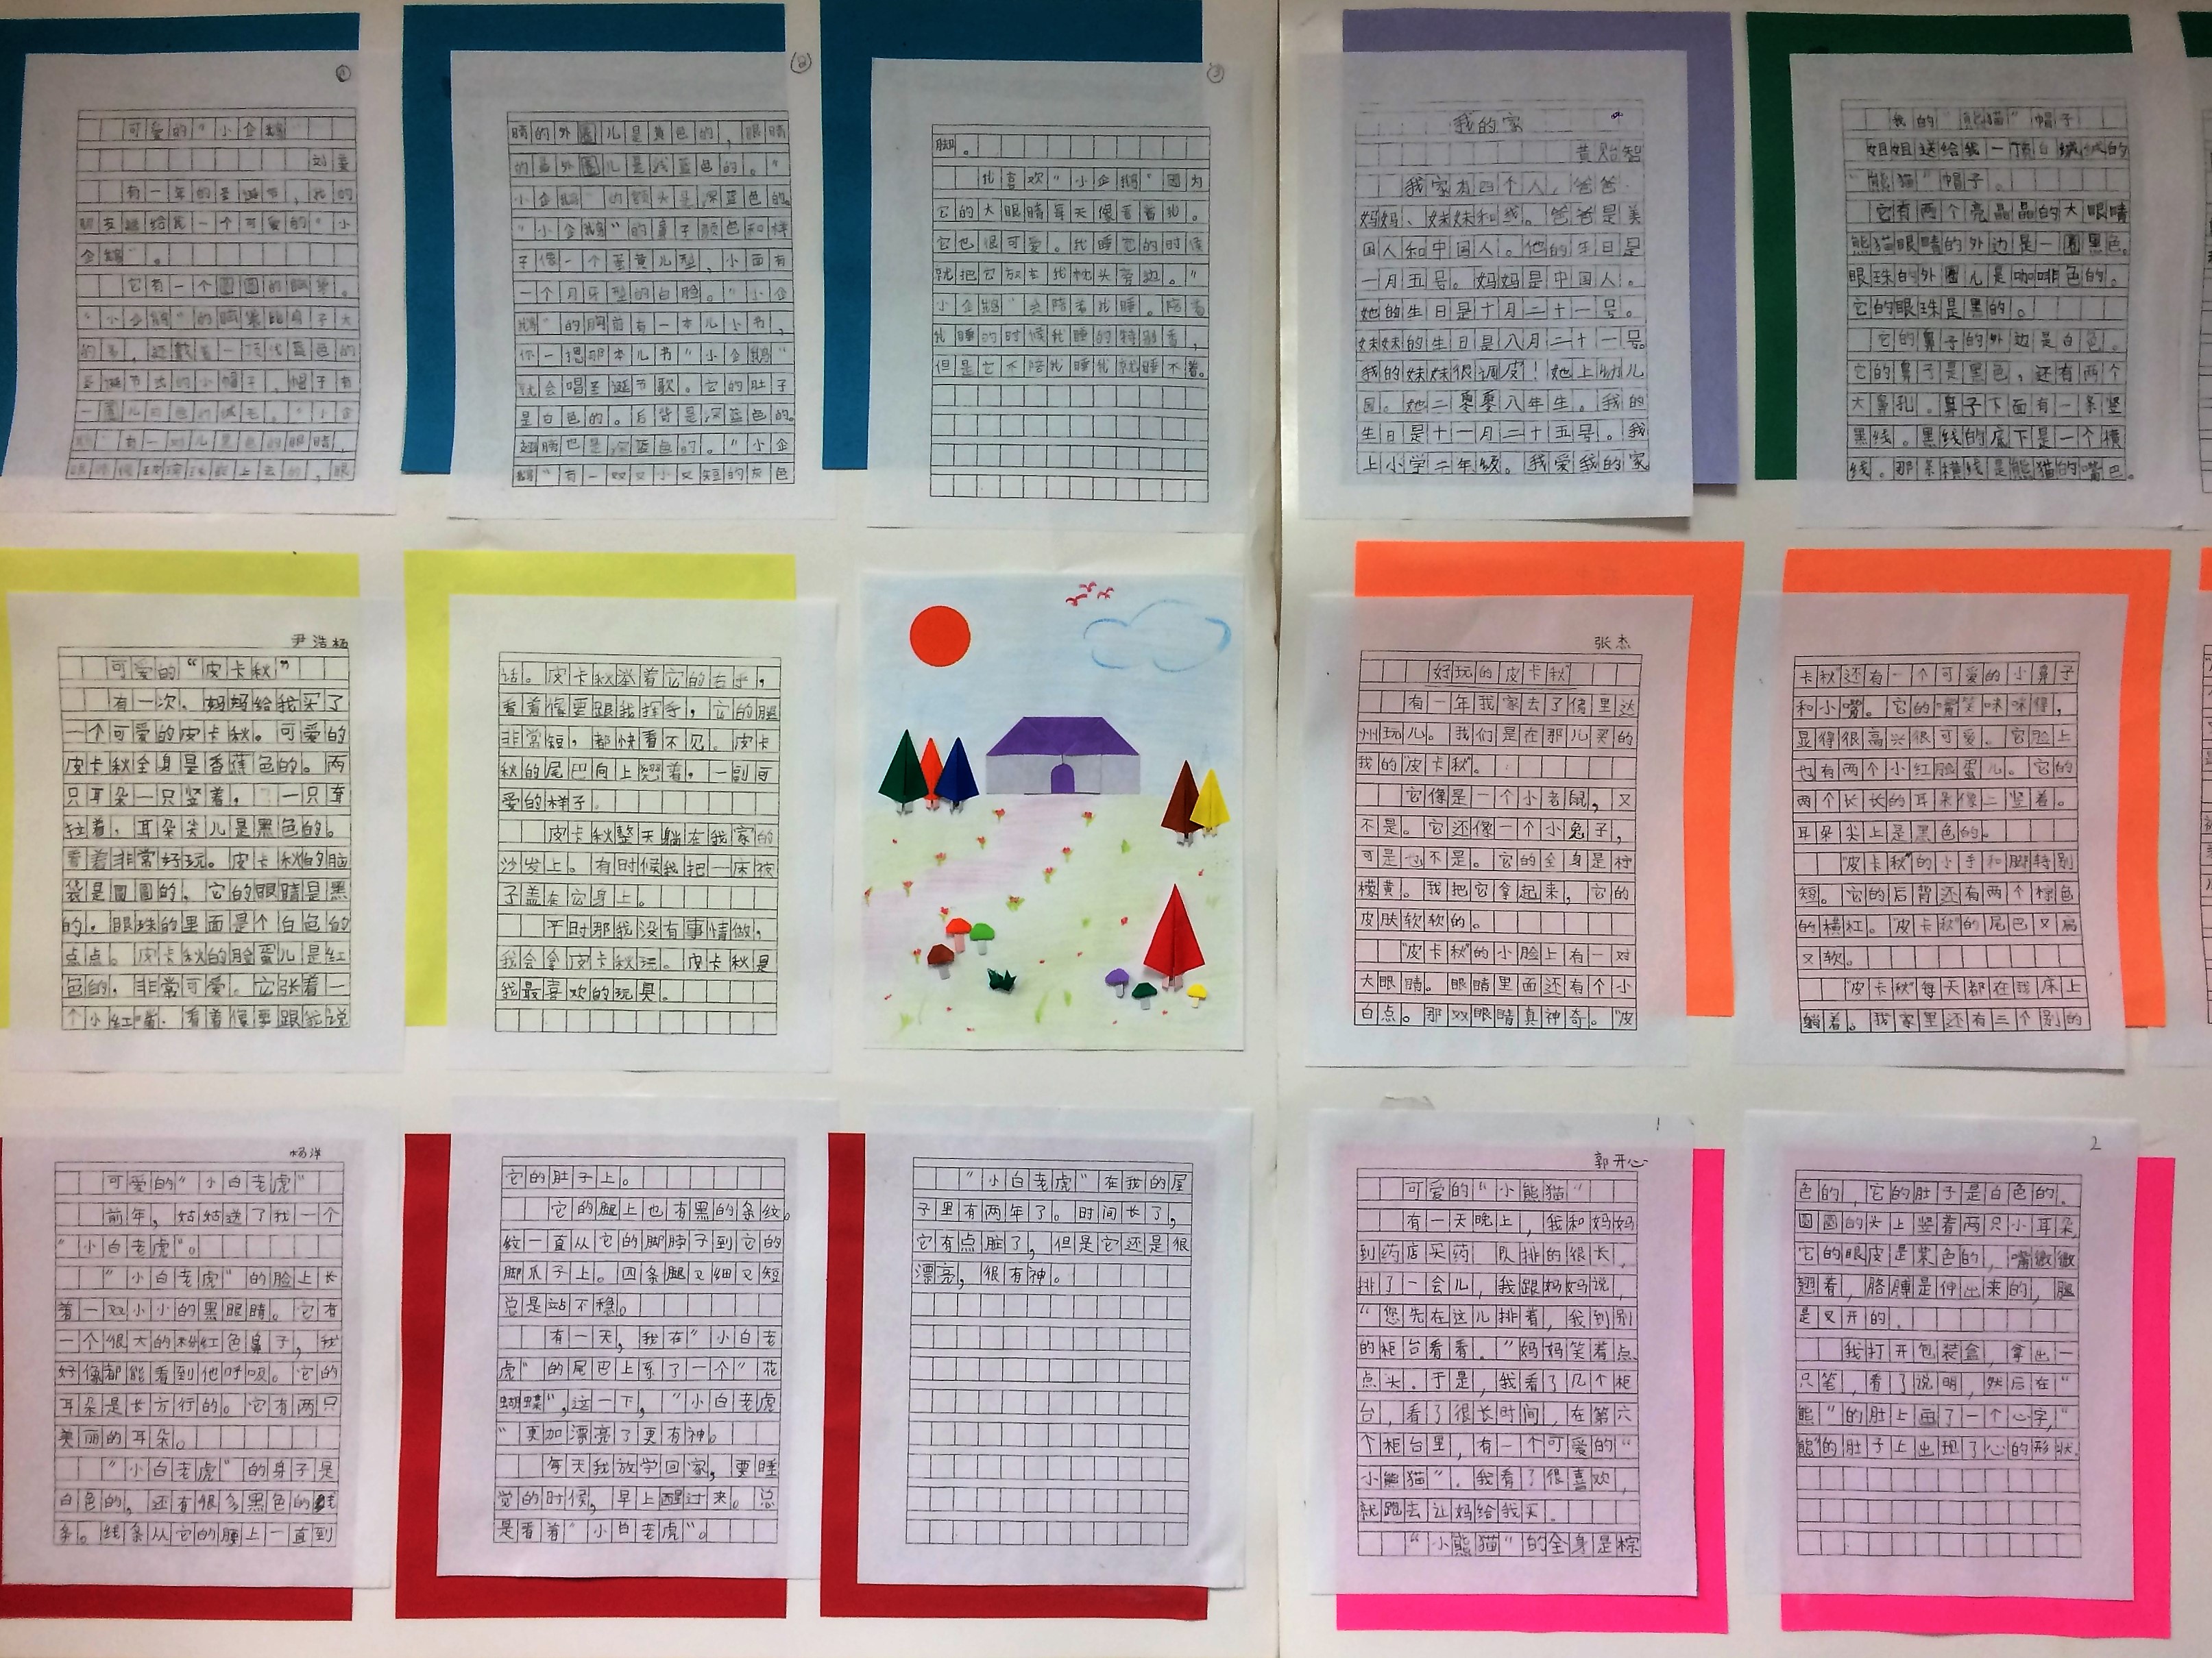 ①
可爱的“小企鹅”
刘雯
有一年的圣诞节，我的
朋友送给我一个可爱的“小
企鹅”。
它有一个圆圆的脑袋。
“小企鹅”的脑袋比身子大
的多，还戴着一顶浅蓝色的
圣诞节式的小帽子，帽子有
一圈儿白色的绒毛。“小企
鹅”有一对儿黑色的眼睛，
②
睛的外圈儿是黄色的，眼睛
的最外圈儿是浅蓝色的。“
小企鹅”的额头是深蓝色的。
“小企鹅”的鼻子颜色和样
子像一个蛋黄儿型，小面有
一个月牙型的白脸。“小企
鹅”的胸前有一本儿小书，
你一摁那本儿书“小企鹅”
就会唱圣诞节歌。它的肚子
是白色的。后背是深蓝色的。
翅膀也是深蓝色的。“小企
鹅”有一双又小又短的灰色
③
脚。
我喜欢“小企鹅”因为
它的大眼睛每天像看着我。
它也很可爱。我睡觉的时候
就把它放在我枕头旁边。“
小企鹅”会陪着我睡。陪着
我睡的时候我睡的特别香，
但是它不陪我睡我就睡不着。
我的家
黄贻智
我家有四个人，爸爸、
妈妈、妹妹和我。爸爸是美
国人和中国人。他的生日是
一月五号。妈妈是中国人。
她的生日是十月二十一号。
妹妹的生日是八月二十一号。
我的妹妹很调皮！她上幼儿
园。她二零零八年生。我的
生日是十一月二十五号。我
上小学二年级。我爱我的家
我的“熊猫”帽子
姐姐送给我一顶白绒绒的
“熊猫”帽子。
它有两个亮晶晶的大眼睛
熊猫眼睛的外边是一圈黑色。
眼珠的外圈儿是咖啡色的。
它的眼珠是黑的。
它的鼻子的外边是白色。
它的鼻子是黑色，还有两个
大鼻孔。鼻子下面有一条竖
黑线。黑线的底下是一个横
线。那条横线是熊猫的嘴巴。
尹浩杨
可爱的“皮卡秋”
有一次，妈妈给我买了
一个可爱的皮卡秋。可爱的
皮卡秋全身是香蕉色的。两
只耳朵一只竖着，一只耷
拉着，耳朵尖儿是黑色的。
看着非常好玩。皮卡秋的脑
袋是圆圆的，它的眼睛是黑
的，眼珠的里面是个白色的
点点。皮卡秋的脸蛋儿是红
色的，非常可爱。它张着一
个小红嘴，看着像要跟我说
话。皮卡秋举着它的右手，
看着像要跟我挥手，它的腿
非常短，都快看不见。皮卡
秋的尾巴向上翘着，一副可
爱的样子。
皮卡秋整天躺在我家的
沙发上。有时候我把一床被
子盖在它身上。
平时那我没有事情做，
我会拿皮卡秋玩。皮卡秋是
我最喜欢的玩具。
张杰
好玩的皮卡秋
有一年我家去了佛里达
州玩儿。我们是在那儿买的
我的“皮卡秋”。
它像是一个小老鼠，又
不是。它还像一个小兔子，
可是也不是。它的全身是柠
檬黄。我把它拿起来，它的
皮肤软软的。
“皮卡秋”的小脸上有一对
大眼睛。眼睛里面还有个小
白点。那双眼睛真神奇。“皮
卡秋”还有一个可爱的小鼻子
和小嘴。它的嘴笑咪咪得，
显得很高兴很可爱。它脸上
也有两个小红脸蛋儿。它的
两个长长的耳朵像上竖着。
耳朵尖上是黑色的。
“皮卡秋”的小手和脚特别
短。它的后背还有两个棕色
的横杠。“皮卡秋”的尾巴又扁
又软。
“皮卡秋”每天都在我床上
躺着。我家里还有三个别的
杨洋
可爱的“小白老虎”
前年，姑姑送了我一个
“小白老虎”。
“小白老虎”的脸上长
着一双小小的黑眼睛。它有
一个很大的粉红色鼻子，我
好像都能看到他呼吸。它的
耳朵是长方行的。它有两只
美丽的耳朵。
“小白老虎”的身子是
白色的，还有很多黑色的线
条。线条从它的腰上一直到
它的肚子上。
它的腿上也有黑的条纹。
纹一直从它的脚脖子到它的
脚爪子上。四条腿又细又短
总是站不稳。
有一天，我在“小白老
虎”的尾巴上系了一个“花
蝴蝶”，这一下，“小白老虎
”更加漂亮了更有神。
每天我放学回家，要睡
觉的时候，早上醒过来。总
是看着“小白老虎”。
“小白老虎”在我的屋
子里有两年了。时间长了，
它有点脏了，但是它还是很
漂亮，很有神。
1
郭开心
可爱的“小熊猫”
有一天晚上，我和妈妈
到药店买药，队排的很长，
排了一会儿，我跟妈妈说，
“您先在这儿排着，我到别
的柜台看看。”妈妈笑着点
点头.于是，我看了几个柜
台，看了很长时间，在第六
个柜台里，有一个可爱的“
小熊猫”.我看了很喜欢，
就跑去让妈给我买.
“小熊猫”的全身是棕
2
色的，它的肚子是白色的.
圆圆的头上竖着两只小耳朵，
它的眼皮是紫色的，嘴微微
翘着，胳膊是伸出来的，腿
是叉开的.
我打开包装盒，拿出一
只笔，看了说明，然后在“
熊”的肚上画了一个心字，“
熊”的肚子上出现了心的形状.